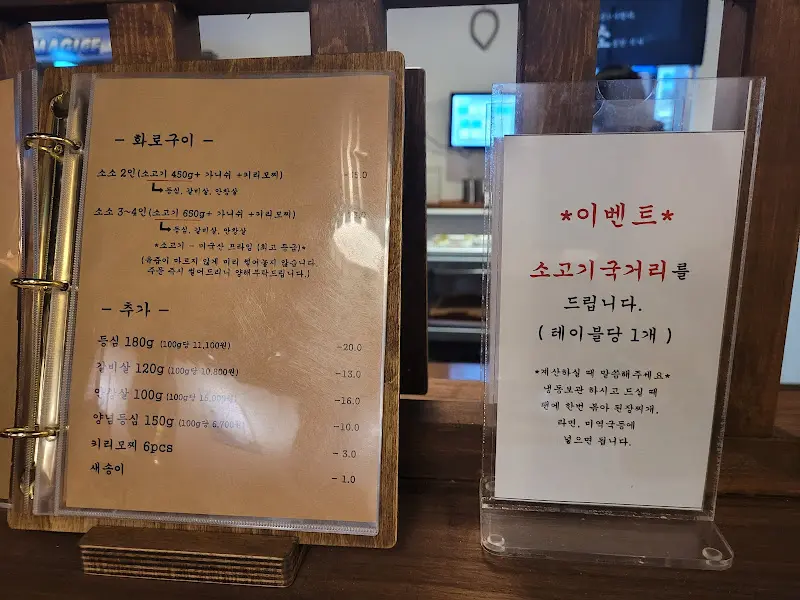 - 화로구이 -
소소 2인(소고기 450g+ 가니쉬 +키리모찌)
등심, 갈비살, 안창살
소소 3~4인(소고기 650g+ 가니쉬 +키리모찌)
등심, 갈비살, 안창살
*소고기 - 미국산 프라임 (최고 등급)*
(육즙이 마르지 않게 미리 썰어놓지 않습니다.
주문 즉시 썰어드리니 양해부탁드립니다.)
- 추가 -
등심 180g (100g당 11,100원) -20.0
갈비살 120g (100g당 10,800원) -13.0
100g (100g당 -16.0
양념등심 150g (100g당 6,700원) -10.0
키리모찌 6pcs - 3.0
새송이 - 1.0
*이벤트*
소고기국거리를
드립니다.
( 테이블당 1개 )
*계산하실 때 말씀해주세요*
냉동보관 하시고 드실 때
팬에 한번 볶아 된장찌개,
라면, 미역국등에
넣으면 됩니다.